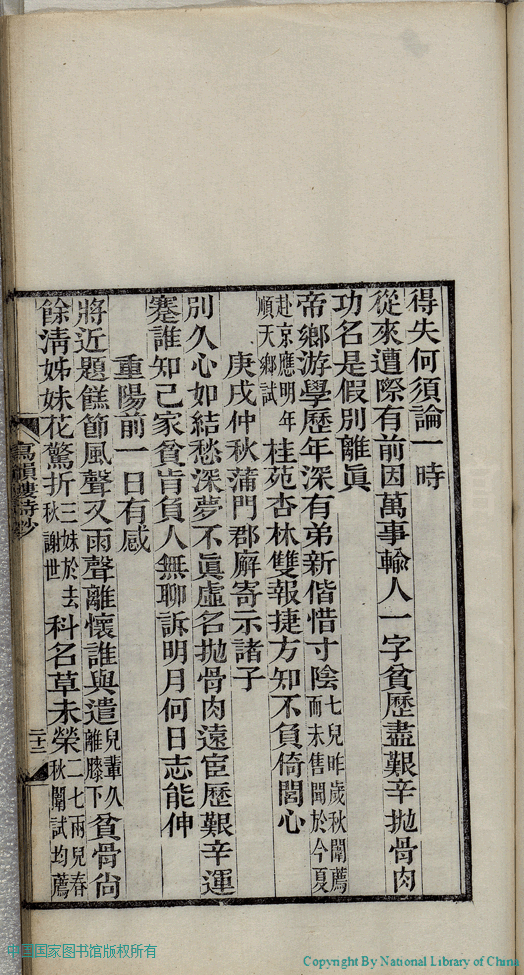 得失何須論一時
從來遭際有前因萬事輸人一字貧歷盡艱辛拋骨肉
功名是假別離眞
帝鄉游學歷年深有弟新偕惜寸陰七兒昨歲秋闈薦而未售聞於今夏
赴京應明年順天鄉試桂苑杏林雙報捷方知不負倚閭心
庚戌仲秋蒲門郡廨寄示諸子
別久心如結愁深夢不眞虛名拋骨肉遠宦歷艱辛運
蹇誰知己家貧肯負人無聊訴明月何日志能伸
重陽前一日有感
將近題餻節風聲又雨聲離懷誰與遣兒輩久離膝下貧骨尙
餘淸姊妹花驚折三妹於去秋謝世科名草未榮二七兩兒春秋闈試均薦
寫韻樓詩鈔
二十二
中国国家图书馆版权所有
Copyright By National Library of China